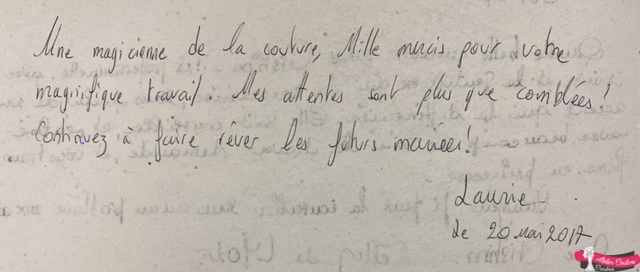 Une magicienne de la couture, Mille mercis pour votre
magnifique travail Mes attentes sont plus que comblées !
Continuez à faire rêver les futurs mariées !
Laurie
le 20 mai 2017
Atelier Couture